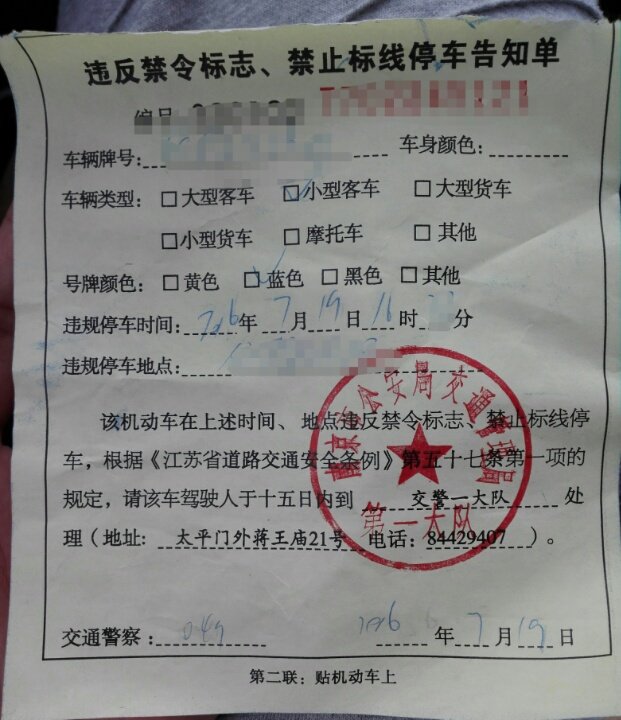 违反禁令标志、禁止标线停车告知单
编号
车辆牌号: 车身颜色:
车辆类型: □大型客车 □小型客车 □大型货车
□小型货车 □摩托车 □其他
号牌颜色: □黄色 □蓝色 □黑色 □其他
违规停车时间: 年 7 月 19 日 16 时 分
违规停车地点:
该机动车在上述时间、地点违反禁令标志、禁止标线停
车，根据《江苏省道路交通安全条例》第五十七条第一项的
规定，请该车驾驶人于十五日内到 交警一大队 处
理（地址: 太平门外蒋王庙21号 电话: 84429407 ）。
南京市公安局交通管理局
第一大队
交通警察: 049 年 7 月 19 日
第二联: 贴机动车上